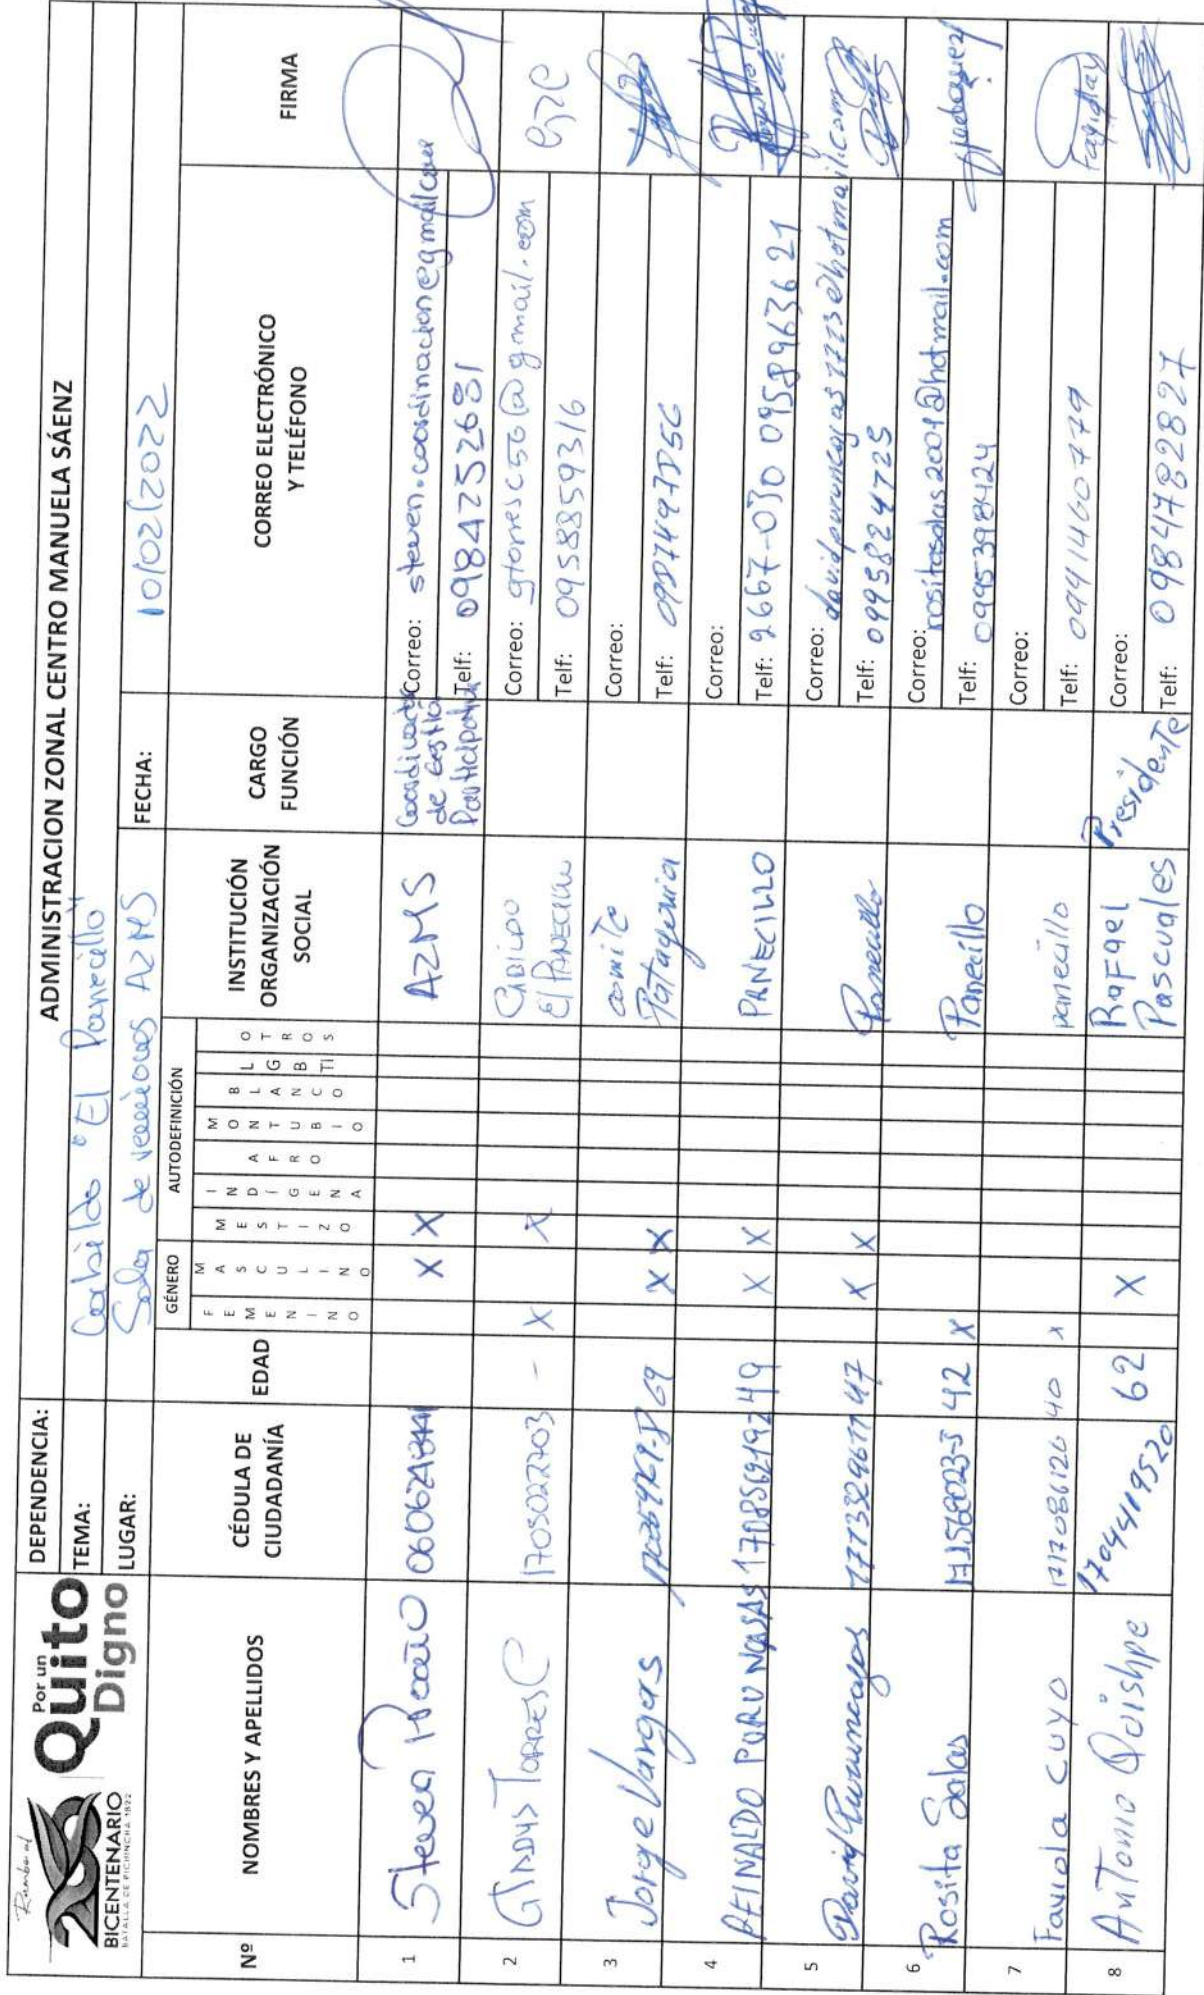 Rumbo al
BICENTENARIO
BATALLA DE PICHINCHA 1822
Por un
Quito
Digno
DEPENDENCIA: ADMINISTRACION ZONAL CENTRO MANUELA SÁENZ
TEMA: Cabildo "El Panecillo"
LUGAR: Sala de reuniones AZMS FECHA: 10/02/2022
Nº NOMBRES Y APELLIDOS CÉDULA DE CIUDADANÍA EDAD GÉNERO AUTODEFINICIÓN INSTITUCIÓN ORGANIZACIÓN SOCIAL CARGO FUNCIÓN CORREO ELECTRÓNICO Y TELÉFONO FIRMA
FEMENINO MASCULINO MESTIZO INDÍGENA AFRO MONTUBIO BLANCO LGBTI OTROS
1 Steven Proaño X X AZMS Coordinador de Gestión Participativa Correo: steven.coordinacion@gmail.com
Telf: 0984252681
2 GLADYS TORRES C 1705022703 - X X CABILDO El PANECILLO Correo: gtorresc56@gmail.com
Telf: 0958859316
3 Jorge Vargas 69 X X comité Patagonia Correo:
Telf:
4 REINALDO PURUNCAJAS 1708569192 49 X X PANECILLO Correo:
Telf: 2667-030 0958963621
5 David Puruncajas 47 X X Panecillo Correo: davidpuruncajas7773@hotmail.com
Telf: 0993824725
6 Rosita Salas 42 X Panecillo Correo: rositasalas2009@hotmail.com
Telf: 0995398424
7 Faviola Cuyo 1717086126 40 x panecillo Correo:
Telf: 0941460779
8 Antonio Quishpe 1704419520 62 X Rafael Pascuales Presidente Correo:
Telf: 0984782827